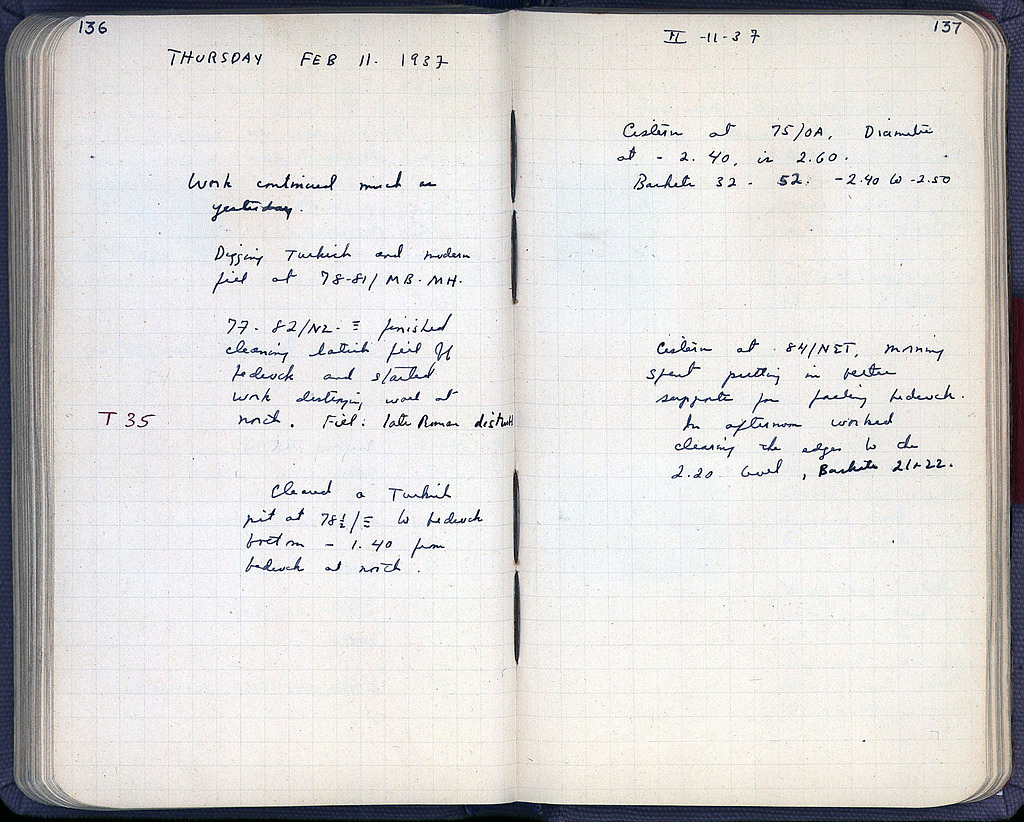 136
THURSDAY FEB 11. 1937
Work continued much as
yesterday.
Digging Turkish and modern
fill at 78-81/MB-MH.
77-82/NL-Ξ finished
cleaning latish fill off
bedrock and started
work destroying wall at
T 35
north. Fill: late Roman disturbed
Cleared a Turkish
pit at 78½/Ξ to bedrock
bottom - 1.40 from
bedrock at north.
137
II-11-37
Cistern at 75/ΟΑ, Diameter
at - 2.40, is 2.60.
Baskets 32 - 52. -2.40 to -2.50
Cistern at 84/ΝΞΤ, morning
spent putting in better
supports for failing bedrock.
In afternoon worked
clearing the edges to the
2.20 level, Baskets 21+22.